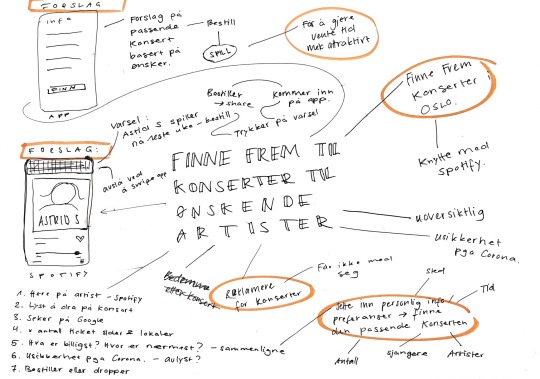 FORSLAG
info
FINN
APP
Forslag på
passende
konsert
basert på
ønsker.
Bestill
SPILL
For å gjøre
ventetid
mer attraktivt
Varsel:
Astrid S spiller
nå neste uke - bestill
Bestiller
→ share
Kommer inn
på app.
Trykker på varsel
Finne frem
konserter i
OSLO.
Knytte med
spotify.
FORSLAG:
ASTRID S
SPOTIFY
avslå ved
å swipe opp
FINNE FREM TIL
KONSERTER TIL
ØNSKENDE
ARTISTER
uoversiktlig
usikkerhet
pga Corona.
Reklamere
for konserter
Får ikke med
seg
Sette inn personlig info
preferanser → finne
den passende konserten
Sted
Tid
Antall
sjangere
Artister
1. Høre på artist - Spotify
2. Lyst å dra på konsert
3. Søker på Google
4. x antall ticket sider & lokaler
5. Hva er billigst? Hvor er nærmest? - sammenligne
6. Usikkerhet pga Corona. - avlyst?
7. Bestiller eller dropper